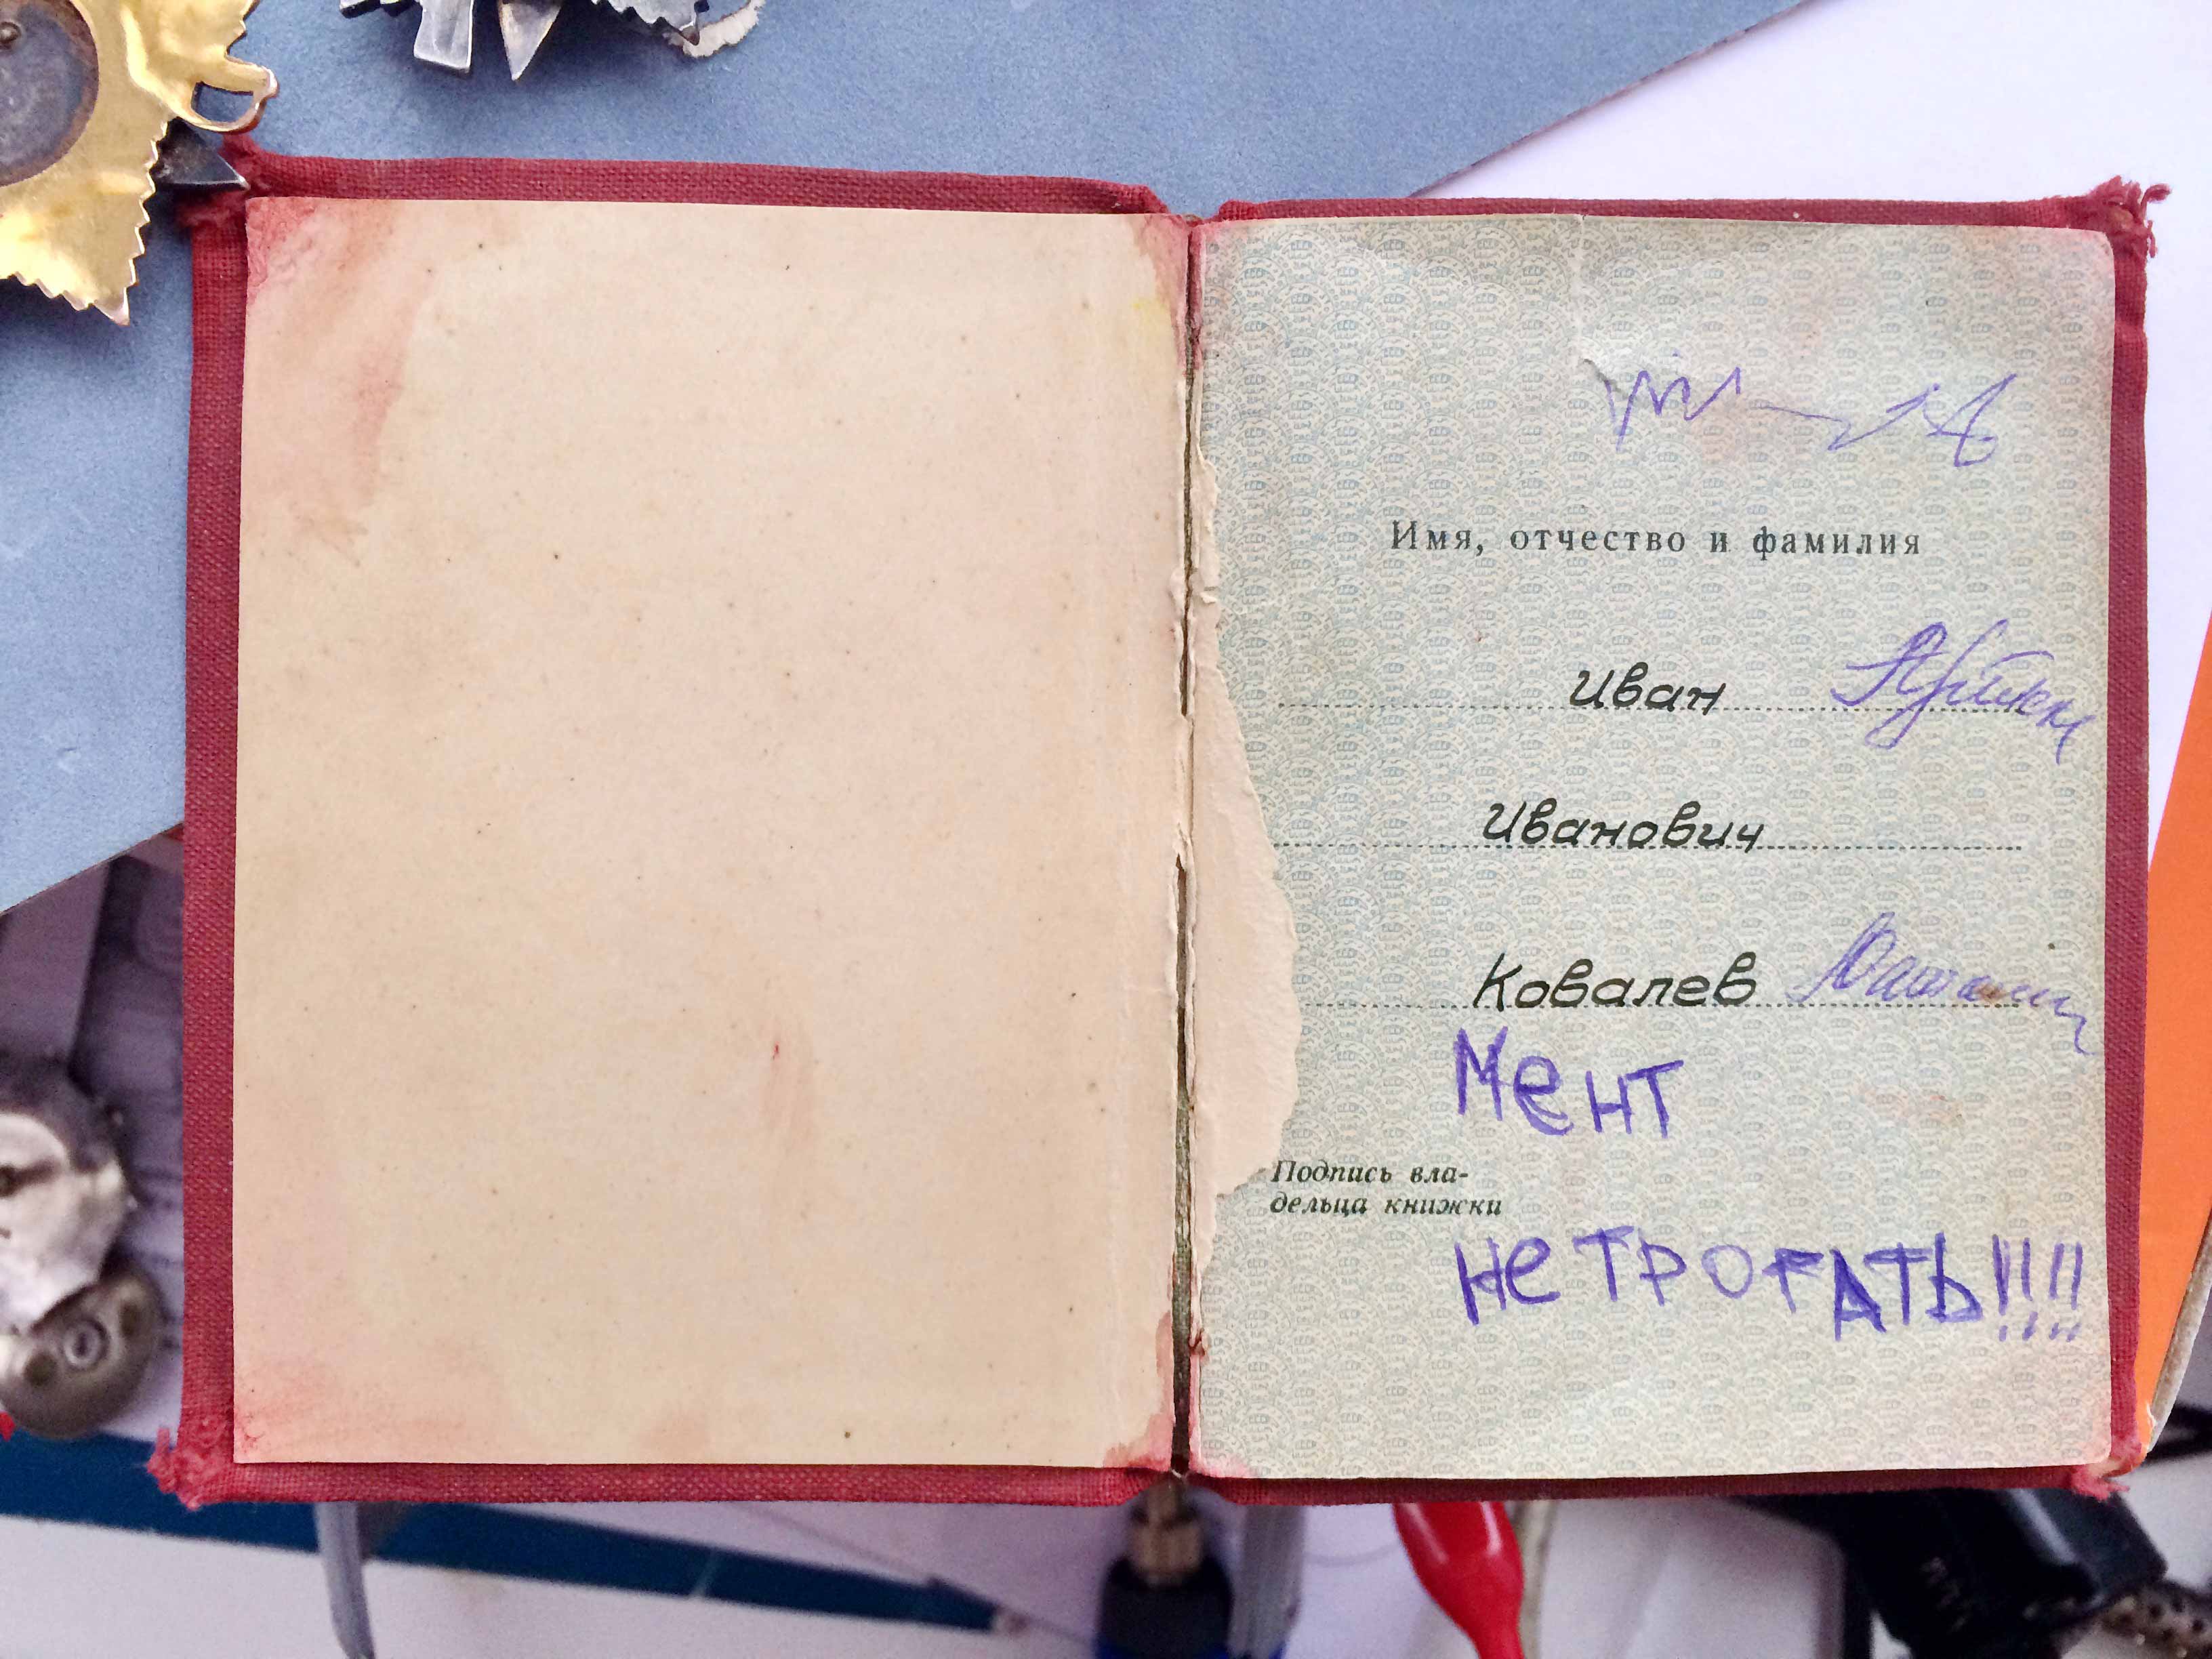 Имя, отчество и фамилия
Иван
Иванович
Ковалев
Мент
Подпись вла-
дельца книжки
не трогать!!!!